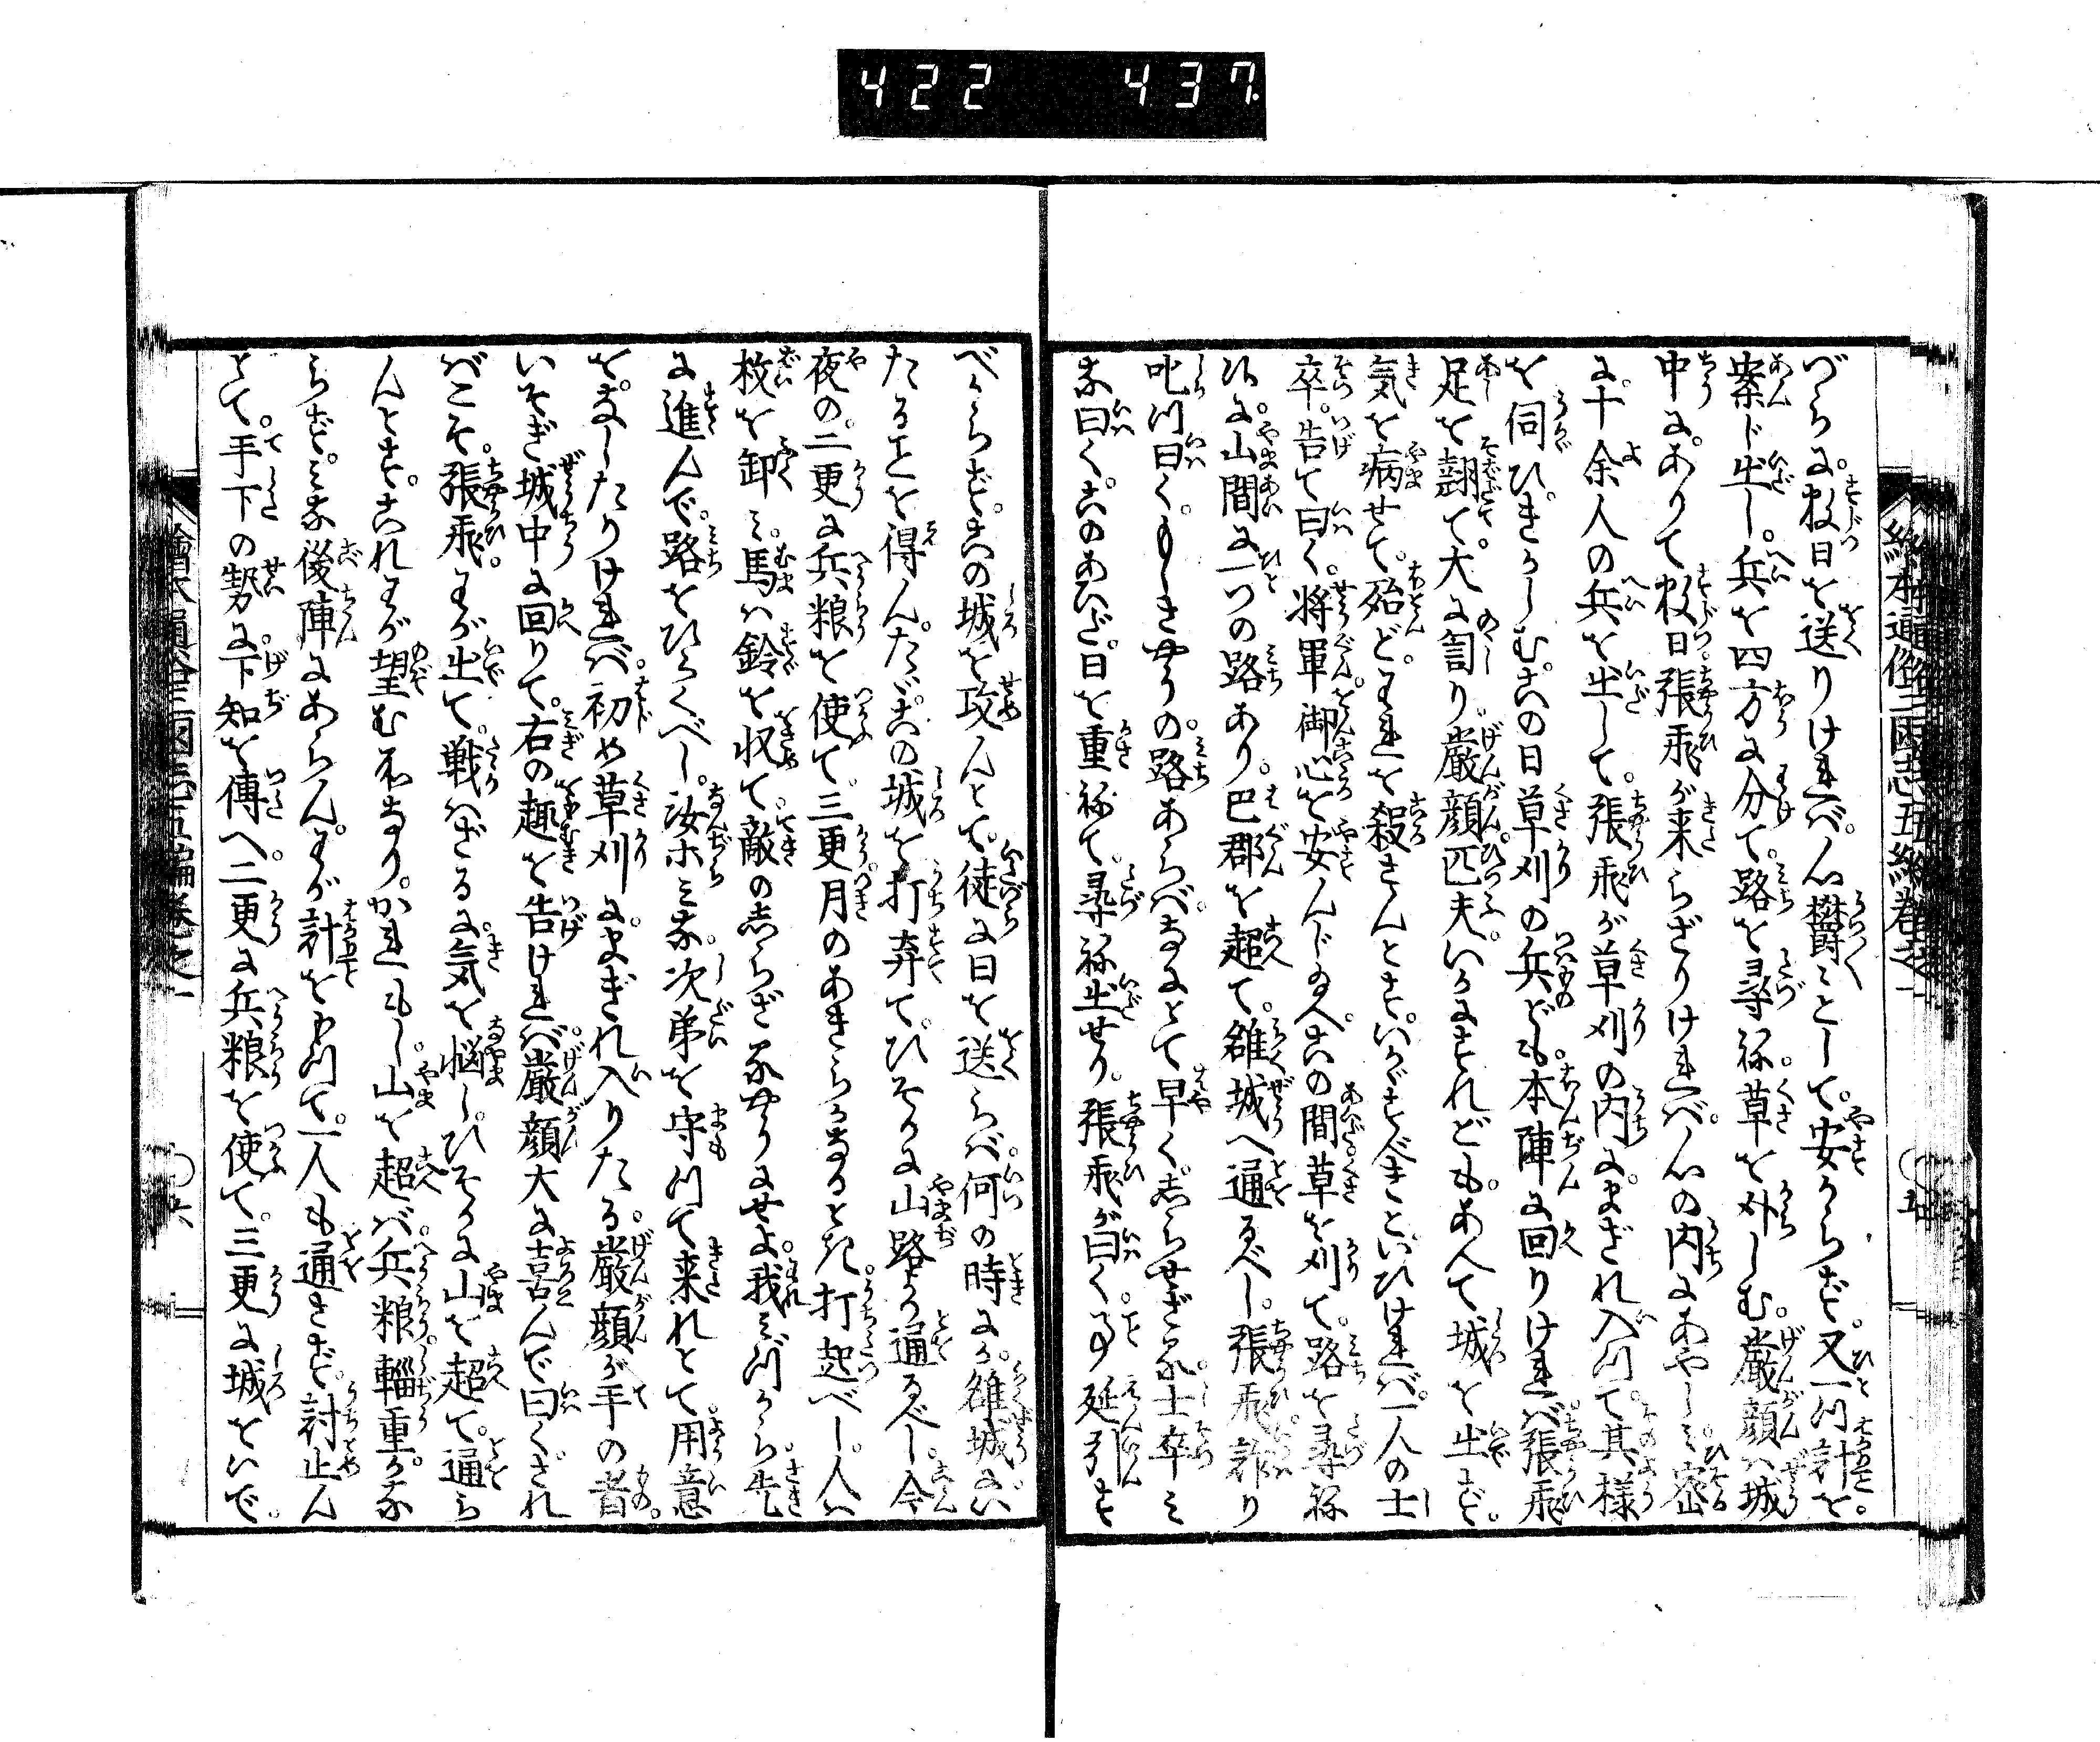 422 437
繪本通俗三國志五編卷之一
づらに。数日を送りければ。心鬱々として。安からず。又一ツ計を。
案じ出し。兵を四方に分て。路を尋ね。草を刈しむ。厳顔ハ城
中に。ありて数日。張飛が来らざりければ。心の内にあやしミ密
に。十余人の兵を出して。張飛が草刈の内に。まぎれ入ツて。其様
を伺ひ。きかしむ。この日草刈の兵ども。本陣に回りければ。張飛
足を翹て。大に詈り。厳顔匹夫。いかにすれども。あへて城を出ず。
気を病せて。殆ど。われを殺さんとす。いかがすべきといひければ。一人の士
卒。告て曰く。将軍御心を安んじ給へ。この間草を刈て。路を尋ね
候に。山間に一つの路あり。巴郡を超て。雒城へ通るべし。張飛詐り
叱ツ曰く。もしさやうの。路あらば。なにとて早く。志らせざる。士卒ミ
な曰く。このあひだ。日を重ねて。尋ね出せり。張飛が曰く。事延引す
べからず。この城を攻んとて。徒に日を送らば。何の時にか。雒城にい
たることを得ん。たゞこの城を打弃て。ひそかに山路より通るべし。今
夜の。二更に兵粮を使て。三更月のあきらかなるとき。打起べし。人ハ
枚を卸ミ。馬ハ鈴を収て。敵の志らざるやうにせよ。我ミづから先
に進んで。路をひらくべし。汝ホミな。次弟を守ツて来れとて。用意
を。なしたりければ。初め草刈に。まぎれ入りたる。厳顔が手の者。
いそぎ城中に回りて。右の趣を告ければ。厳顔大に喜んで曰く。され
ばこそ。張飛。わが出て。戦ハざるに。気を悩し。ひそかに山を超て。通ら
んとす。これわが望む所なり。かれもし。山を超ば。兵粮。輜重。かな
らず。ミな後陣にあらん。わが計をもツて。一人も通さず。討止ん
とて。手下の勢に下知を傳へ。二更に兵粮を使て。三更に城をいで。
六